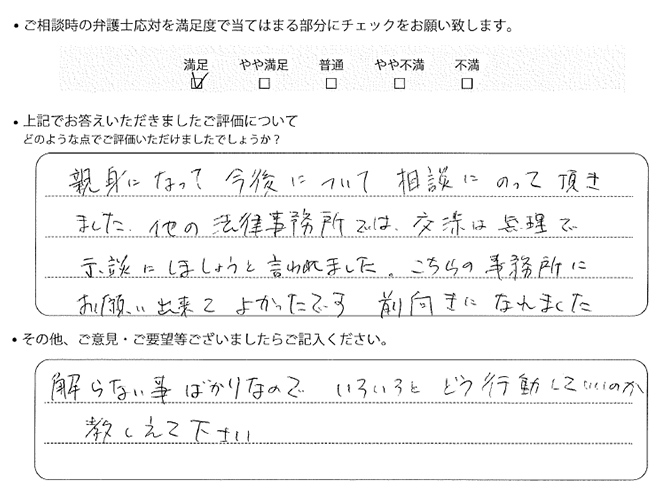 • ご相談時の弁護士応対を満足度で当てはまる部分にチェックをお願い致します。
満足 やや満足 普通 やや不満 不満
☑ □ □ □ □
• 上記でお答えいただきましたご評価について
どのような点でご評価いただけましたでしょうか？
親身になって 今後について 相談にのって頂き
ました。他の法律事務所では、交渉は無理で
示談にしましょうと言われました。こちらの事務所に
お願い出来て よかったです 前向きになれました
• その他、ご意見・ご要望等ございましたらご記入ください。
解らない事ばかりなので いろいろと どう行動していいのか
教しえて下さい